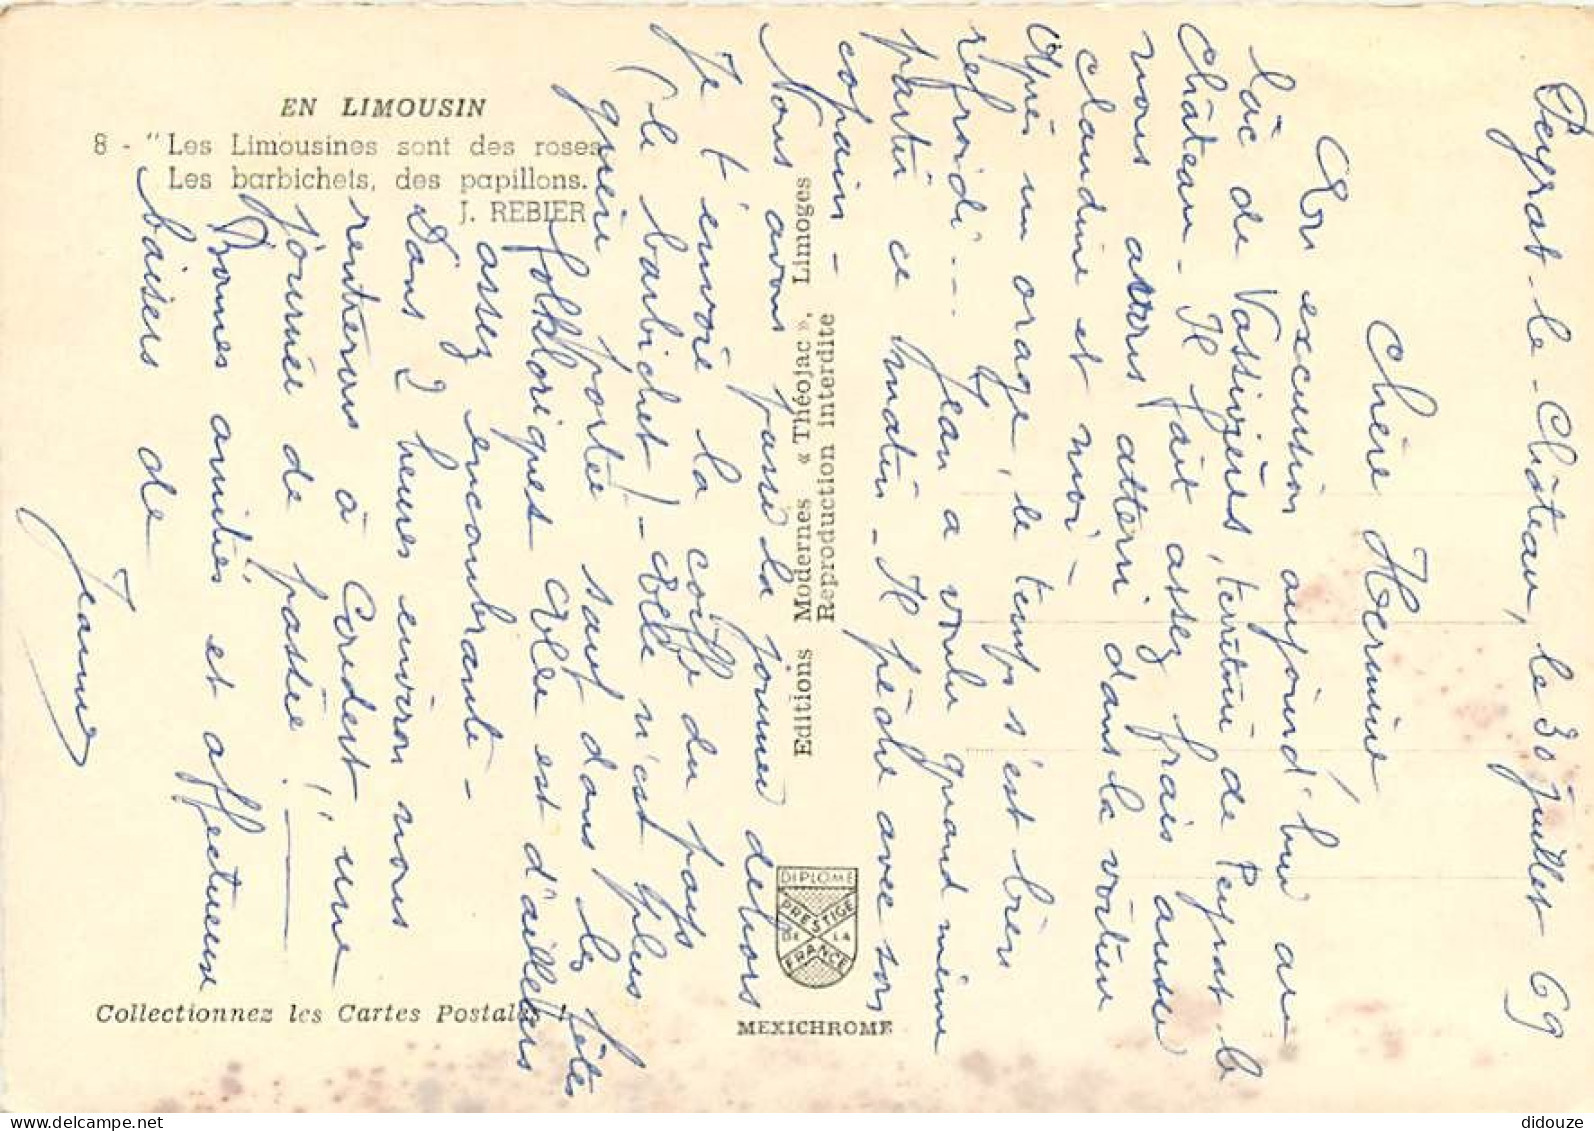 EN LIMOUSIN
8 - "Les Limousines sont des roses
Les barbichets, des papillons.
J. REBIER
Peyrat-le-Château, le 30 juillet 69
Chère Hermine,
En excursion aujourd'hui au
lac de Vassivière, territoire de Peyrat-le
Château - Il fait assez frais aussi
nous avons atterri dans la voiture
Claudine et moi -
Après un orage, le temps s'est bien
refroidi... Jean a voulu quand même
partir ce matin - Il pêche avec son
copain -
Nous avons passé la journée dehors
Je t'envoie la coiffe du pays
(le barbichet) - Elle n'est plus
guère portée sauf dans les fêtes
folkloriques Elle est d'ailleurs
assez encombrante -
Dans 2 heures environ nous
rentrerons à Condat. Une
journée de passée !
Bonnes amitiés et affectueux
baisers de
Jeanne
Editions Modernes « Théojac », Limoges
Reproduction interdite
DIPLOME
PRESTIGE
DE LA
FRANCE
MEXICHROME
Collectionnez les Cartes Postales !
didouze